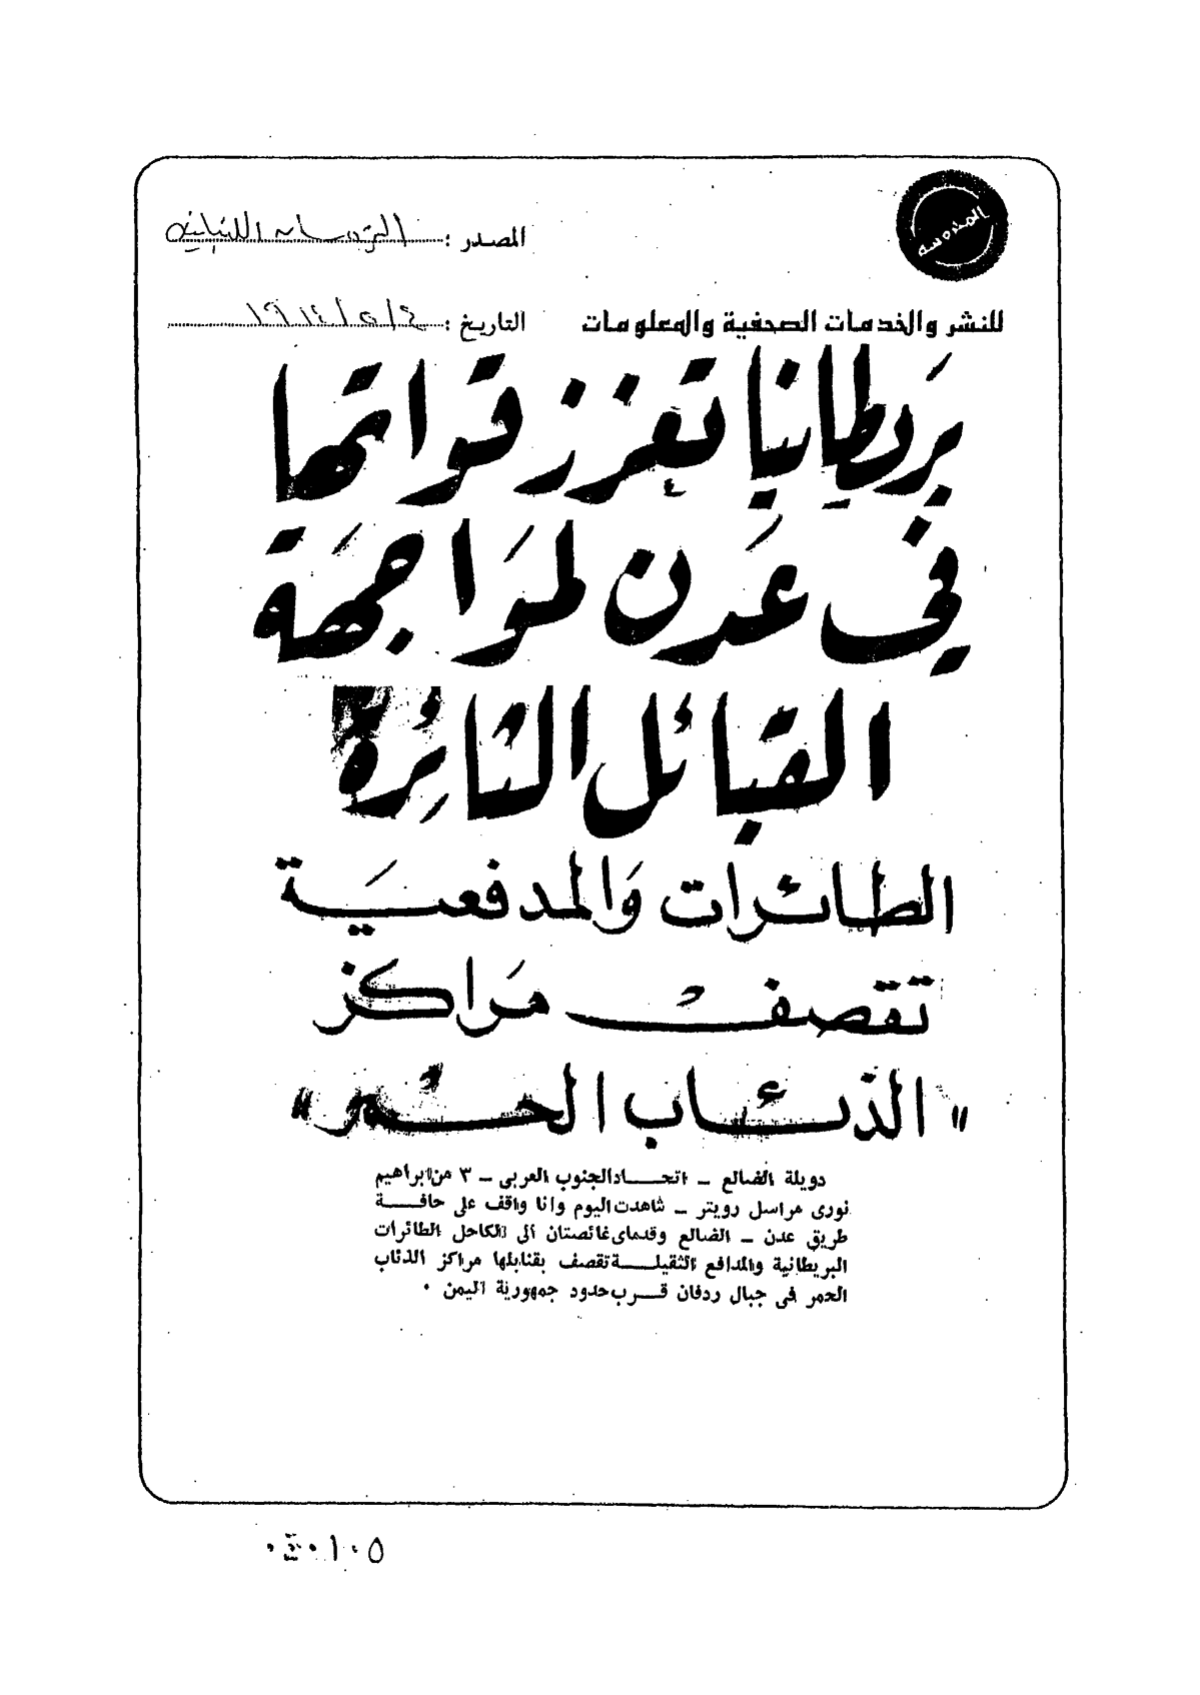 المصدر :
المحروسة
للنشر والخدمات الصحفية والمعلومات
التاريخ : ٤/٥/١٩٦٤
بَريطانيا تعزز قواتها
في عَدن لموَاجهَة
القبائل الثائرة
الطائرات وَالمدفعيَة
تقصف مَراكز
" الذئاب الحمُر "
دويلة الضالع ــ اتحـــاد الجنوب العربى ــ ٣ من ابراهيم
نورى مراسل رويتر ــ شاهدت اليوم وانا واقف على حافـــة
طريق عدن ــ الضالع وقدماى غائصتان الى الكاحل الطائرات
البريطانية والمدافع الثقيلـــة تقصف بقنابلها مراكز الذئاب
الحمر فى جبال ردفان قـــرب حدود جمهورية اليمن ٠